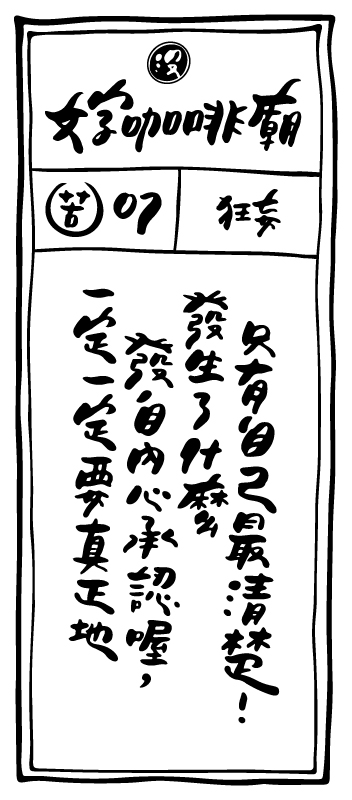 沒
女字咖啡廟
苦 07
狂妄
一定一定要真正地
發自內心承認喔,
發生了什麼
只有自己最清楚!